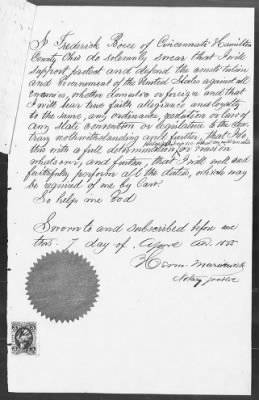 I Frederick of Cincinnati Hamilton
County Ohio do solemnly swear that I will
support protect and defend the constitution
and Government of the United States against all
enemies, whether domestic or foreign and that
I will bear true faith, allegiance and loyalty
to the same, any ordinance, resolution or law of
any state convention or legislature to the con-
trary notwithstanding and further, that I do
this with a full determination
whatsoever, and further, that I will well and
faithfully perform all the duties, which may
be required of me by law.
So help me God
Sworn to and subscribed before me
this 7 day of AD.
Notary public